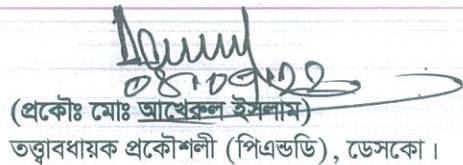 ০৪.০৭.২২
(প্রকৌঃ মোঃ আখেরুল ইসলাম)
তত্ত্বাবধায়ক প্রকৌশলী (পিএন্ডডি), ডেসকো।